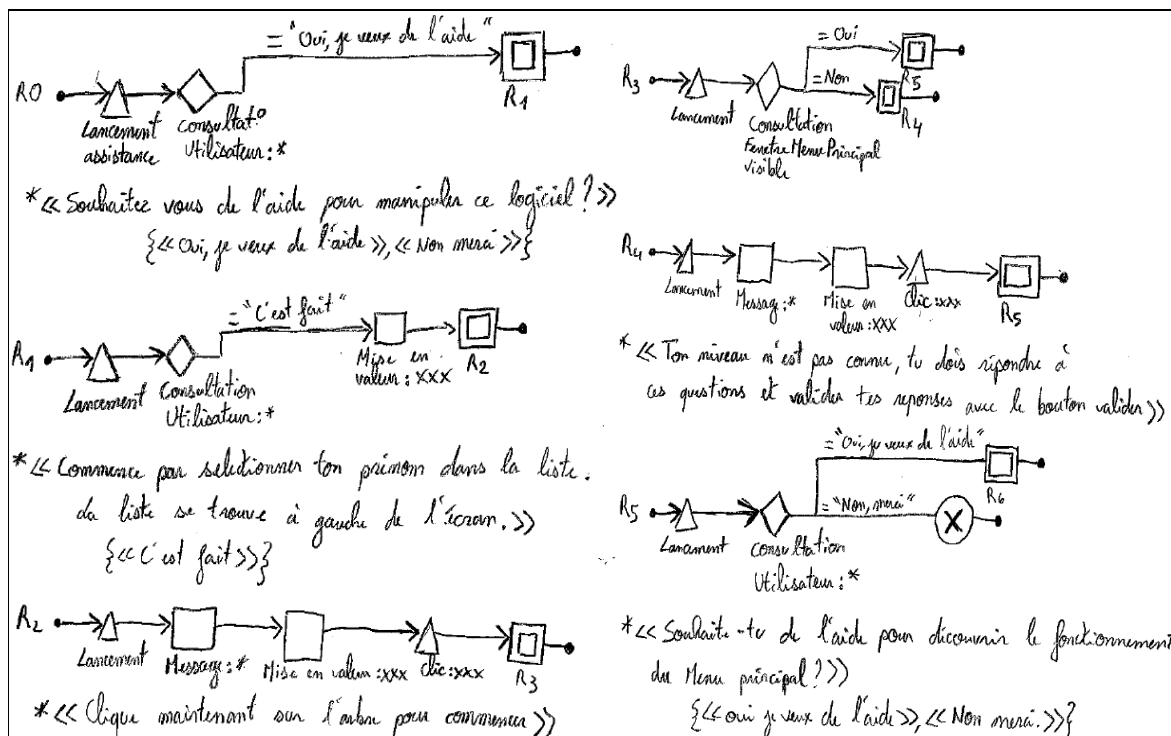 = "Oui, je veux de l'aide"
R0
R1
Lancement
assistance
Consultat°
Utilisateur : *
* << Souhaitez vous de l'aide pour manipuler ce logiciel ? >>
{<< Oui, je veux de l'aide >>, << Non merci >>}
= "C'est fait"
R1
Lancement
Consultation
Utilisateur : *
Mise en
valeur : XXX
R2
* << Commence par selectionner ton prénom dans la liste.
La liste se trouve à gauche de l'écran. >>
{<< C'est fait >>}
R2
Lancement
Message : *
Mise en valeur : xxx
Clic : xxx
R3
* << Clique maintenant sur l'arbre pour commencer >>
= Oui
R5
R3
= Non
R4
Lancement
Consultation
Fenetre Menu Principal
visible
R4
Lancement
Message : *
Mise en
valeur : XXX
Clic : xxx
R5
* << Ton niveau n'est pas connu, tu dois répondre à
ces questions et valider tes reponses avec le bouton valider >>
= "Oui, je veux de l'aide"
R6
R5
= "Non, merci"
X
Lancement
Consultation
Utilisateur : *
* << Souhaite-tu de l'aide pour découvrir le fonctionnement
du Menu principal ? >>
{<< oui je veux de l'aide >>, << Non merci. >>}